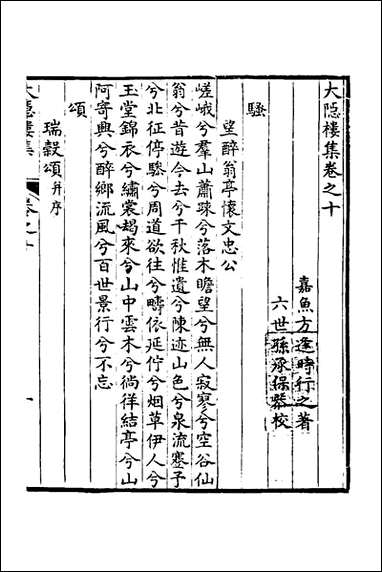 大隱樓集卷之十
嘉魚方逢時行之著
六世孫承保黎校
騷
望醉翁亭懷文忠公
嵯峨兮羣山蕭疎兮落木瞻望兮無人寂寥兮空谷仙
翁兮昔遊今去兮千秋惟遺兮陳迹山色兮泉流蹇予
兮北征停驂兮周道欲往兮疇依延佇兮烟草伊人兮
玉堂錦衣兮繡裳朅來兮山中雲木兮徜徉結亭兮山
阿寄興兮醉鄉流風兮百世景行兮不忘
頌
瑞穀頌并序
大隱樓集
卷之十
一